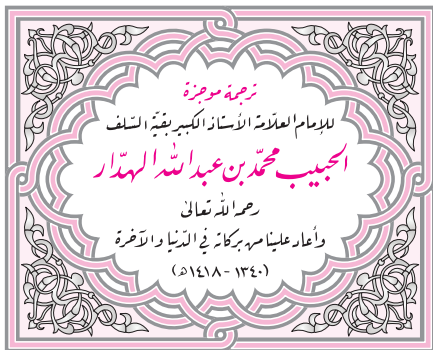 ترجمة موجزة
للإمام العلّامة الأستاذ الكبير بقيّة السّلف
الحبيب محمّد بن عبد الله الهدّار
رحمه الله تعالى
وأعاد علينا من بركاته في الدّنيا والآخرة
(١٣٤٠ - ١٤١٨ه)